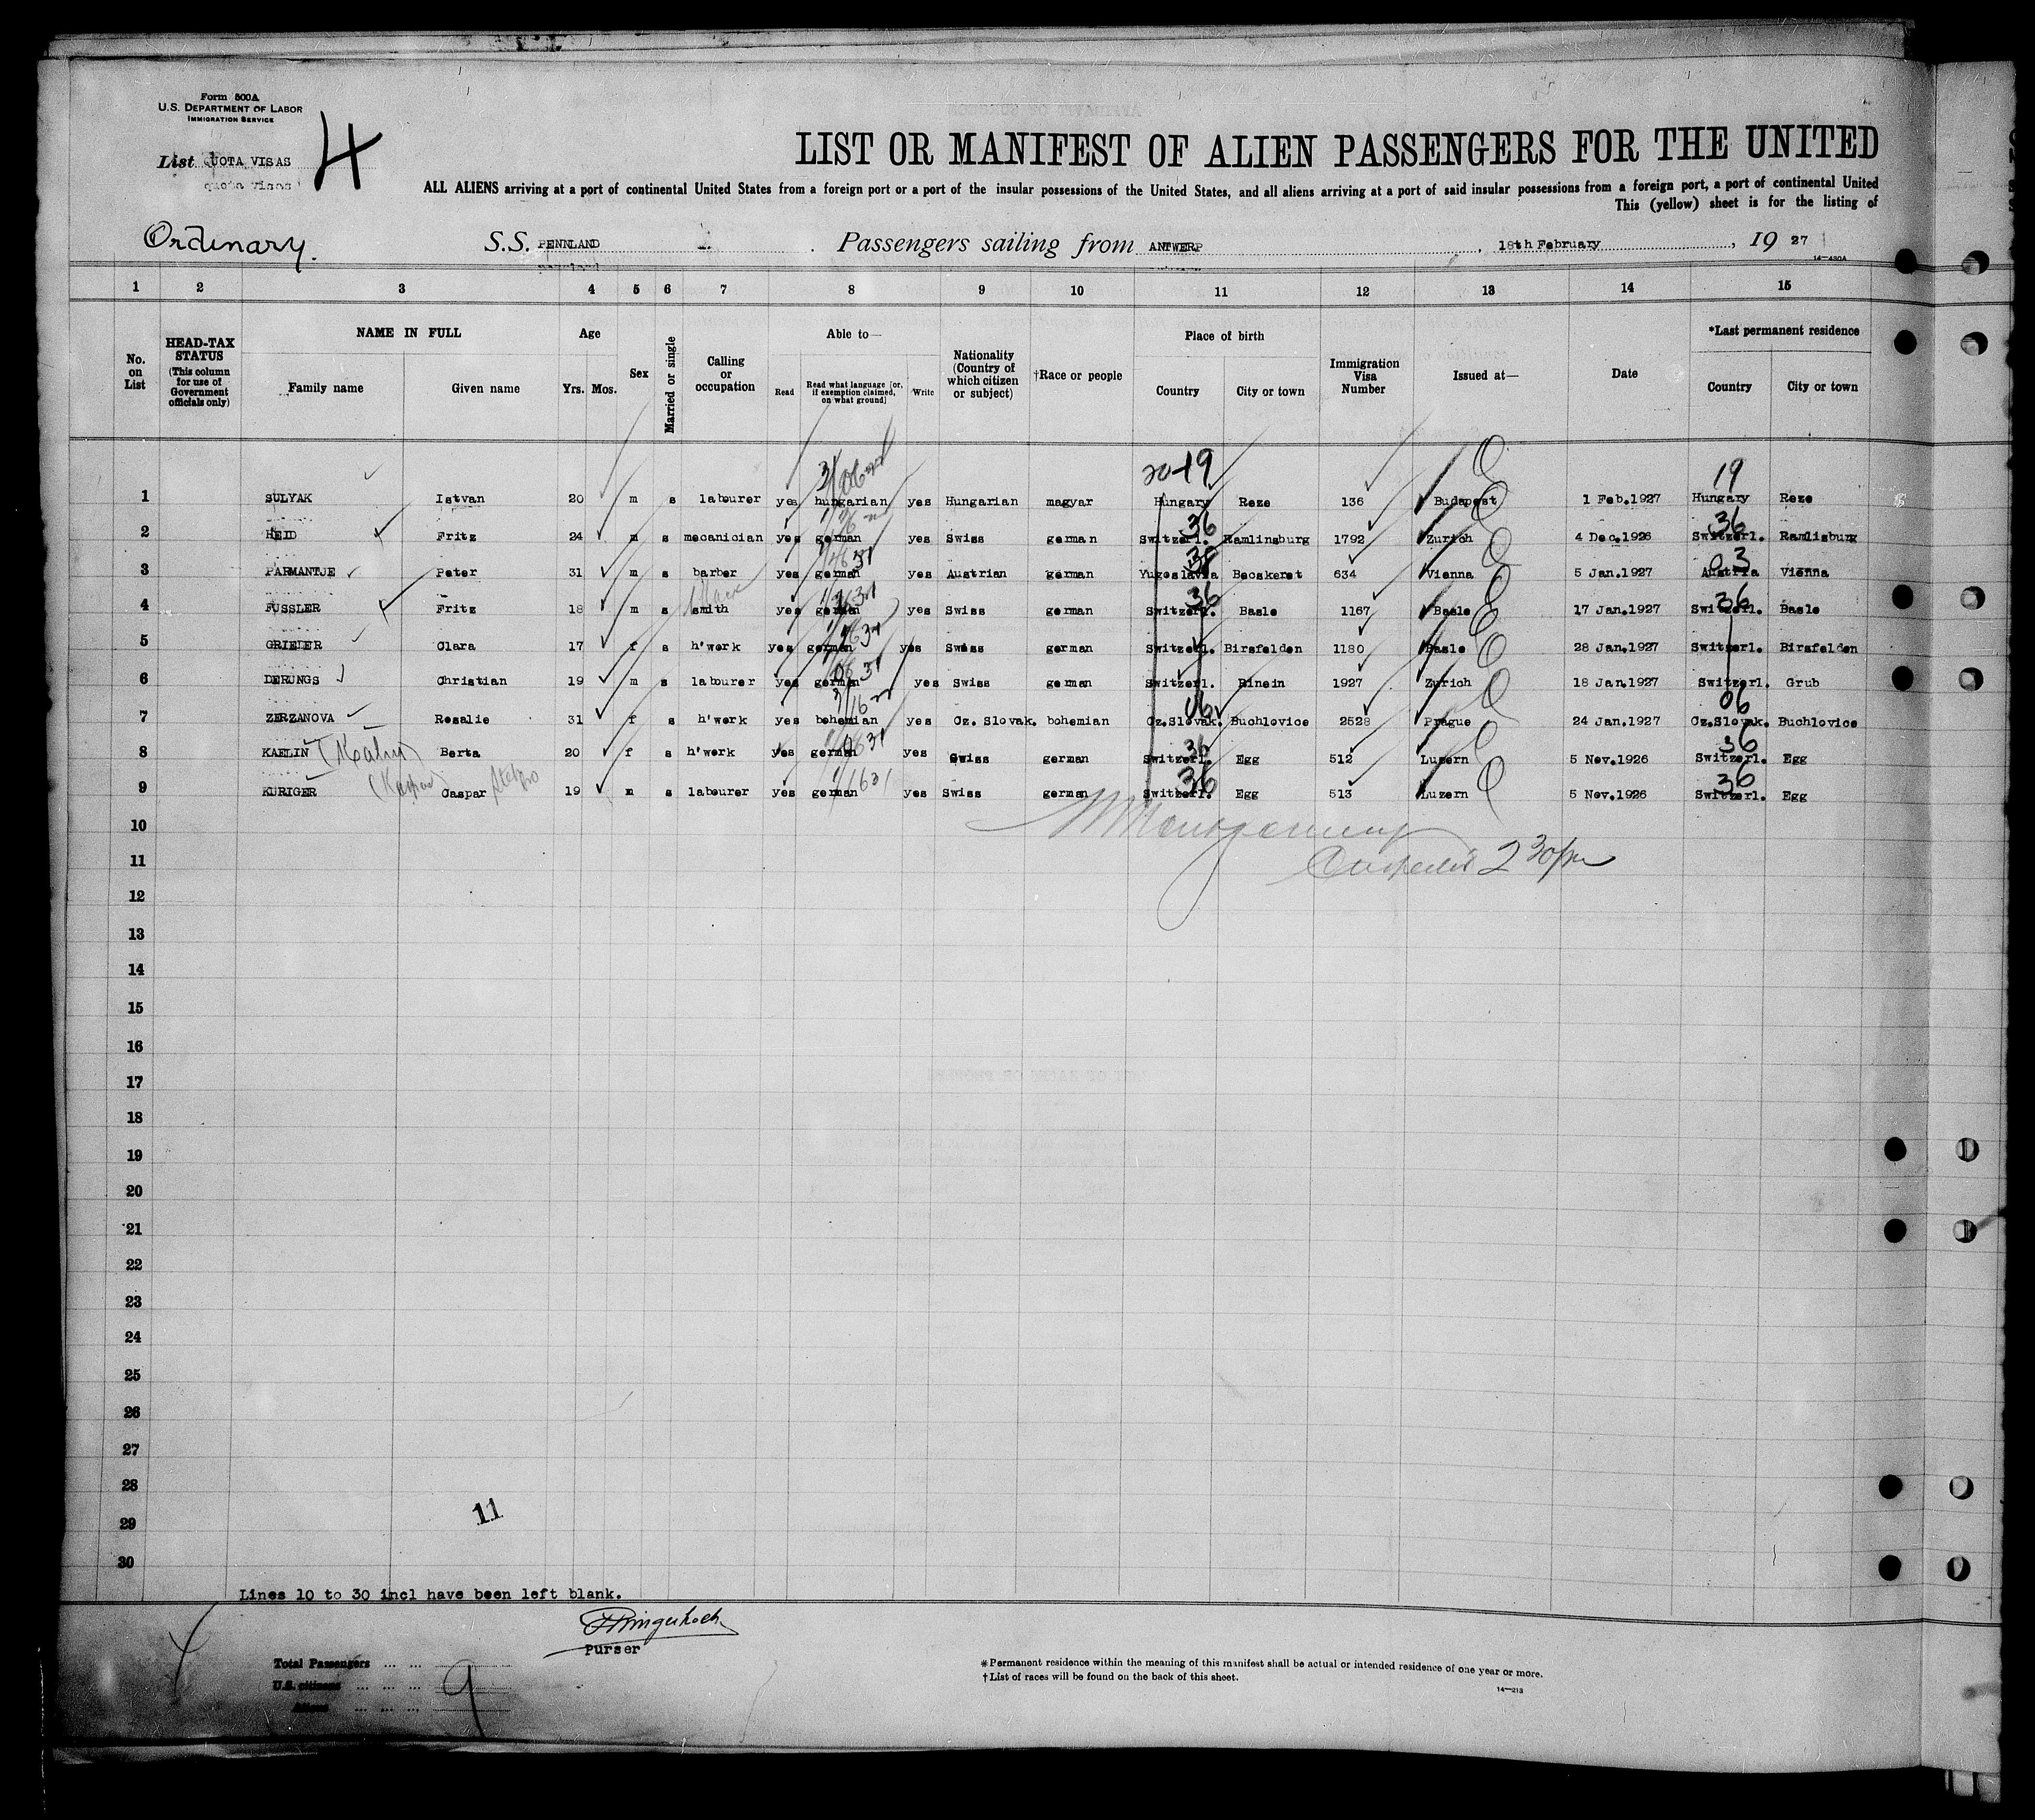 Form 500A
U.S. DEPARTMENT OF LABOR
IMMIGRATION SERVICE
List QUOTA VISAS 4
quota visas
LIST OR MANIFEST OF ALIEN PASSENGERS FOR THE UNITED
ALL ALIENS arriving at a port of continental United States from a foreign port or a port of the insular possessions of the United States, and all aliens arriving at a port of said insular possessions from a foreign port, a port of continental United
This (yellow) sheet is for the listing of
Ordinary.
S.S. PENNLAND Passengers sailing from ANTWERP, 18th February, 19 27
14-480A
1 2 3 4 5 6 7 8 9 10 11 12 13 14 15
No. on List
HEAD-TAX STATUS (This column for use of Government officials only)
NAME IN FULL
Family name Given name
Age
Yrs. Mos.
Sex
Married or single
Calling or occupation
Able to—
Read Read what language [or, if exemption claimed, on what ground] Write
Nationality (Country of which citizen or subject)
†Race or people
Place of birth
Country City or town
Immigration Visa Number
Issued at—
Date
*Last permanent residence
Country City or town
20-19 19
1 SULYAK Istvan 20 m s labourer yes hungarian yes Hungarian magyar Hungary Reze 136 Budapest 1 Feb.1927 Hungary Reze
36 36
2 HEID Fritz 24 m s mecanician yes german yes Swiss german Switzerl. Ramlinsburg 1792 Zurich 4 Dec.1926 Switzerl. Ramlisburg
03
3 PARMANTJE Peter 31 m s barber yes german yes Austrian german Yugoslavia Becskeret 634 Vienna 5 Jan.1927 Austria Vienna
36 36
4 FUSSLER Fritz 18 m s smith yes german yes Swiss german Switzerl. Basle 1167 Basle 17 Jan.1927 Switzerl. Basle
5 GRIEDER Clara 17 f s h'work yes german yes Swiss german Switzerl. Birsfelden 1180 Basle 28 Jan.1927 Switzerl. Birsfelden
6 DERUNGS Christian 19 m s labourer yes german yes Swiss german Switzerl. Rinein 1927 Zurich 18 Jan.1927 Switzerl. Grub
06 06
7 ZERZANOVA Rosalie 31 f s h'work yes bohemian yes Cz. Slovak. bohemian Cz.Slovak. Buchlovice 2528 Prague 24 Jan.1927 Cz.Slovak. Buchlovice
36 36
8 KAELIN (Kalin) Berta 20 f s h'work yes german yes Swiss german Switzerl. Egg 512 Luzern 5 Nov.1926 Switzerl. Egg
36 36
9 KURIGER (Kaspar) Caspar 19 m s labourer yes german yes Swiss german Switzerl. Egg 513 Luzern 5 Nov.1926 Switzerl. Egg
10 Montgomery
11 2 30 pm
12
13
14
15
16
17
18
19
20
21
22
23
24
25
26
27
28
11
29
30
Lines 10 to 30 incl have been left blank.
Purser
Total Passengers
U.S. citizens 9
Aliens
*Permanent residence within the meaning of this manifest shall be actual or intended residence of one year or more.
†List of races will be found on the back of this sheet.
14-213